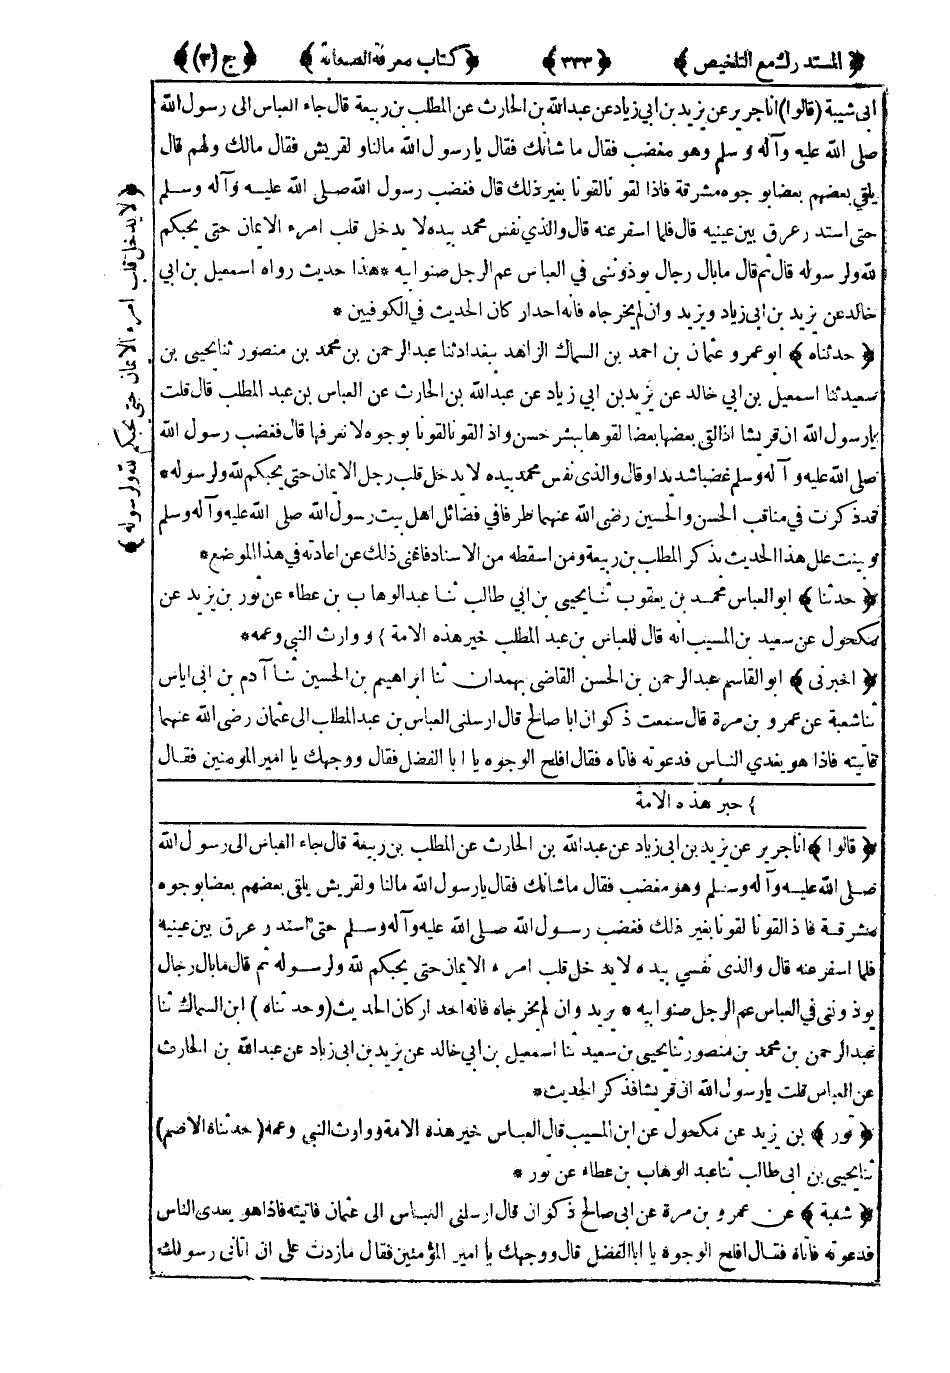 ﴿ المستدرك مع التلخيص ﴾ ﴿ ٣٣٣ ﴾ ﴿ كتاب معرفة الصحابة ﴾ ﴿ ج (٣) ﴾
ابى شيبة (قالوا) انا جرير عن يزيد بن ابي زياد عن عبد الله بن الحارث عن المطلب بن ربيعة قال جاء العباس الى رسول الله
صلى الله عليه وآله وسلم وهو مغضب فقال ما شانك فقال يا رسول الله مالنا ولقريش فقال مالك ولهم قال
يلقى بعضهم بعضا بوجوه مشرقة فاذا لقونا لقونا بغير ذلك قال فغضب رسول الله صلى الله عليه وآله وسلم
حتى استدر عرق بين عينيه قال فلما اسفر عنه قال والذي نفس محمد بيده لا يدخل قلب امرء الايمان حتى يحبكم
لله ولرسوله قال ثم قال ما بال رجال يوذونني في العباس عم الرجل صنوابيه * هذا حديث رواه اسمعيل بن ابي
خالد عن يزيد بن ابى زياد ويزيد وان لم يخرجاه فانه احد اركان الحديث في الكوفيين *
﴿ حدثناه ﴾ ابو عمرو عثمان بن احمد بن السماك الزاهد ببغداد ثنا عبد الرحمن بن محمد بن منصور ثنا يحيى بن
سعيد ثنا اسمعيل بن ابي خالد عن يزيد بن ابي زياد عن عبد الله بن الحارث عن العباس بن عبد المطلب قال قلت
يا رسول الله ان قريشا اذا لقى بعضها بعضا لقوها ببشر حسن واذ القونا لقونا بوجوه لا نعرفها قال فغضب رسول الله
صلى الله عليه وآله وسلم غضبا شديدا وقال والذى نفس محمد بيده لا يدخل قلب رجل الايمان حتى يحبكم لله ولرسوله *
قد ذكرت في مناقب الحسن والحسين رضى الله عنهما طرفا في فضائل اهل بيت رسول الله صلى الله عليه وآله وسلم
وبينت علل هذا الحديث بذكر المطلب بن ربيعة ومن اسقطه من الاسناد فاغنى ذلك عن اعادته في هذا الموضع *
﴿ حدثنا ﴾ ابو العباس محمد بن يعقوب ثنا يحيى بن ابي طالب ثنا عبد الوهاب بن عطاء عن ثور بن يزيد عن
مكحول عن سعيد بن المسيب انه قال للعباس بن عبد المطلب خير هذه الامة } ووارث النبي وعمه *
﴿ اخبرني ﴾ ابو القاسم عبد الرحمن بن الحسن القاضى بهمدان ثنا ابراهيم بن الحسين ثنا آدم بن ابى اياس
ثنا شعبة عن عمرو بن مرة قال سمعت ذكوان ابا صالح قال ارسلنى العباس بن عبد المطلب الى عثمان رضى الله عنهما
فاتيته فاذا هو يغدي الناس فدعوته فاتاه فقال افلح الوجوه يا ابا الفضل فقال ووجهك يا امير المومنين فقال
} حبر هذه الامة
﴿ قالوا ﴾ انا جرير عن يزيد بن ابى زياد عن عبد الله بن الحارث عن المطلب بن ربيعة قال جاء العباس الى رسول الله
صلى الله عليه وآله وسلم وهو مغضب فقال ما شانك فقال يا رسول الله مالنا ولقريش يلقى بعضهم بعضا بوجوه
مشرقة فاذ القونا لقونا بغير ذلك فغضب رسول الله صلى الله عليه وآله وسلم حتى استدر عرق بين عينيه
فلما اسفر عنه قال والذى نفسي بيده لا يدخل قلب امرء الايمان حتى يحبكم لله ولرسوله ثم قال ما بال رجال
يوذونني في العباس عم الرجل صنوابيه * يزيد وان لم يخرجاه فانه احد اركان الحديث (وحدثناه) ابن السماك ثنا
عبد الرحمن بن محمد بن منصور ثنا يحيى بن سعيد ثنا اسمعيل بن ابي خالد عن يزيد بن ابى زياد عن عبد الله بن الحارث
عن العباس قلت يا رسول الله ان قريشا فذكر الحديث *
﴿ ثور ﴾ بن يزيد عن مكحول عن ابن المسيب قال العباس خير هذه الامة ووارث النبي وعمه (حدثناه الاصم)
ثنا يحيى بن ابى طالب ثنا عبد الوهاب بن عطاء عن ثور *
﴿ شعبة ﴾ عن عمرو بن مرة عن ابى صالح ذكوان قال ارسلنى العباس الى عثمان فاتيته فاذا هو يغدى الناس
فدعوته فاتاه فقال افلح الوجوه يا ابا الفضل قال ووجهك يا امير المؤمنين فقال مازدت على ان اتانى رسولك
﴿ لا يدخل قلب امرء الايمان حتى يحبكم لله ولرسوله ﴾